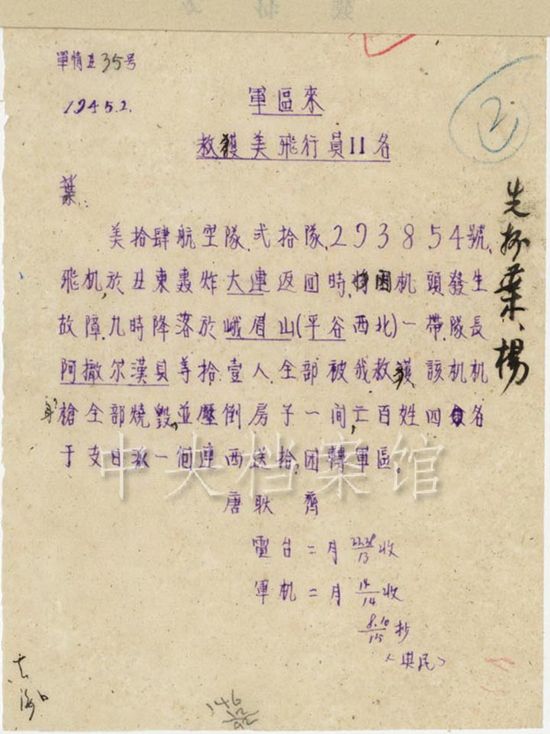 軍情亞35号
1945.2.
軍區來
救獲美飛行員11名
葉:
美拾肆航空隊.弍拾隊.293854號.
飛机,於丑東轟炸大連返回時,因机頭發生
故障,九時降落於峨眉山(平谷西北)一帶,隊長
阿撒尔漢貝等拾壹人.全部被我救獲該机机
身槍全部燒毀,並壓倒房子一間,亡百姓四名
于支日派一個連西送拾,团轉軍區。
唐耿 齊
電台二月 收
軍机二月 收
14
8.10
15 抄
中央档案馆
2
先抄葉、楊
146